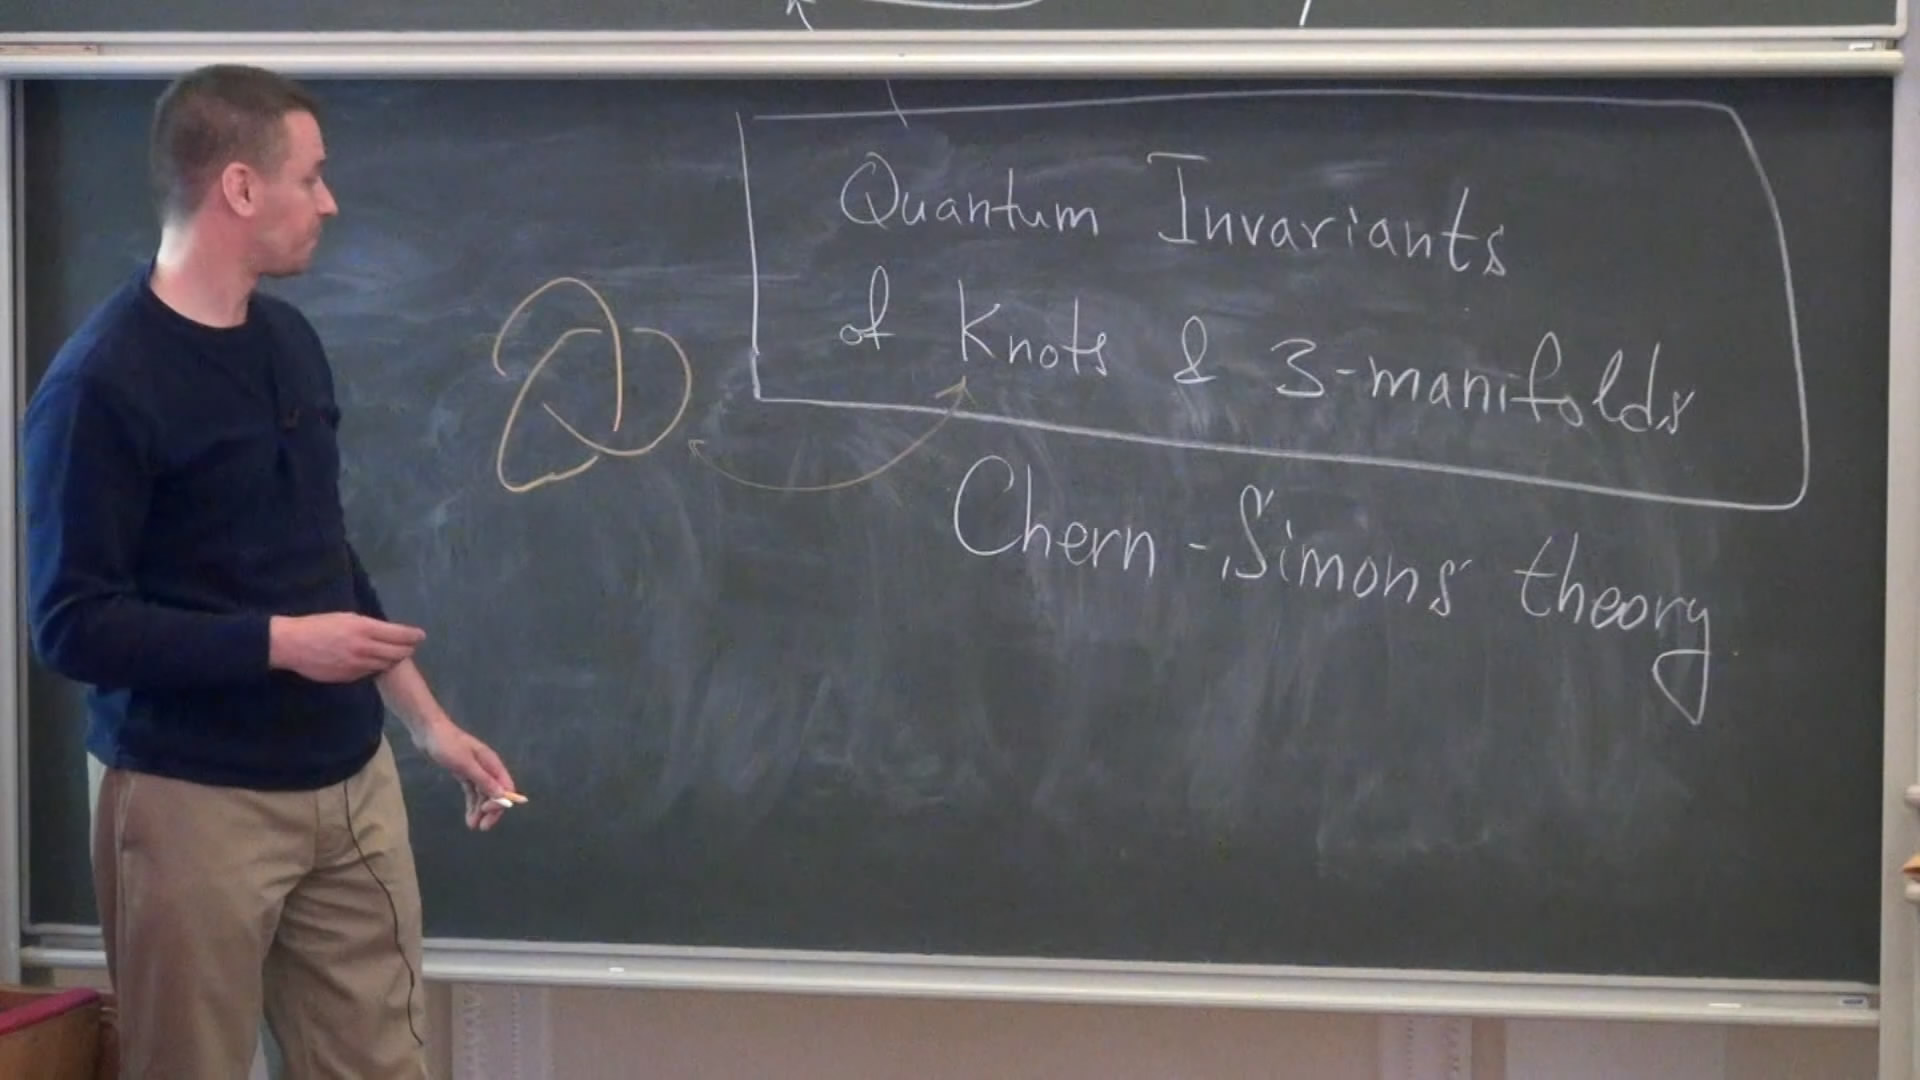 Quantum Invariants
of Knots & 3-manifolds
Chern-Simons theory